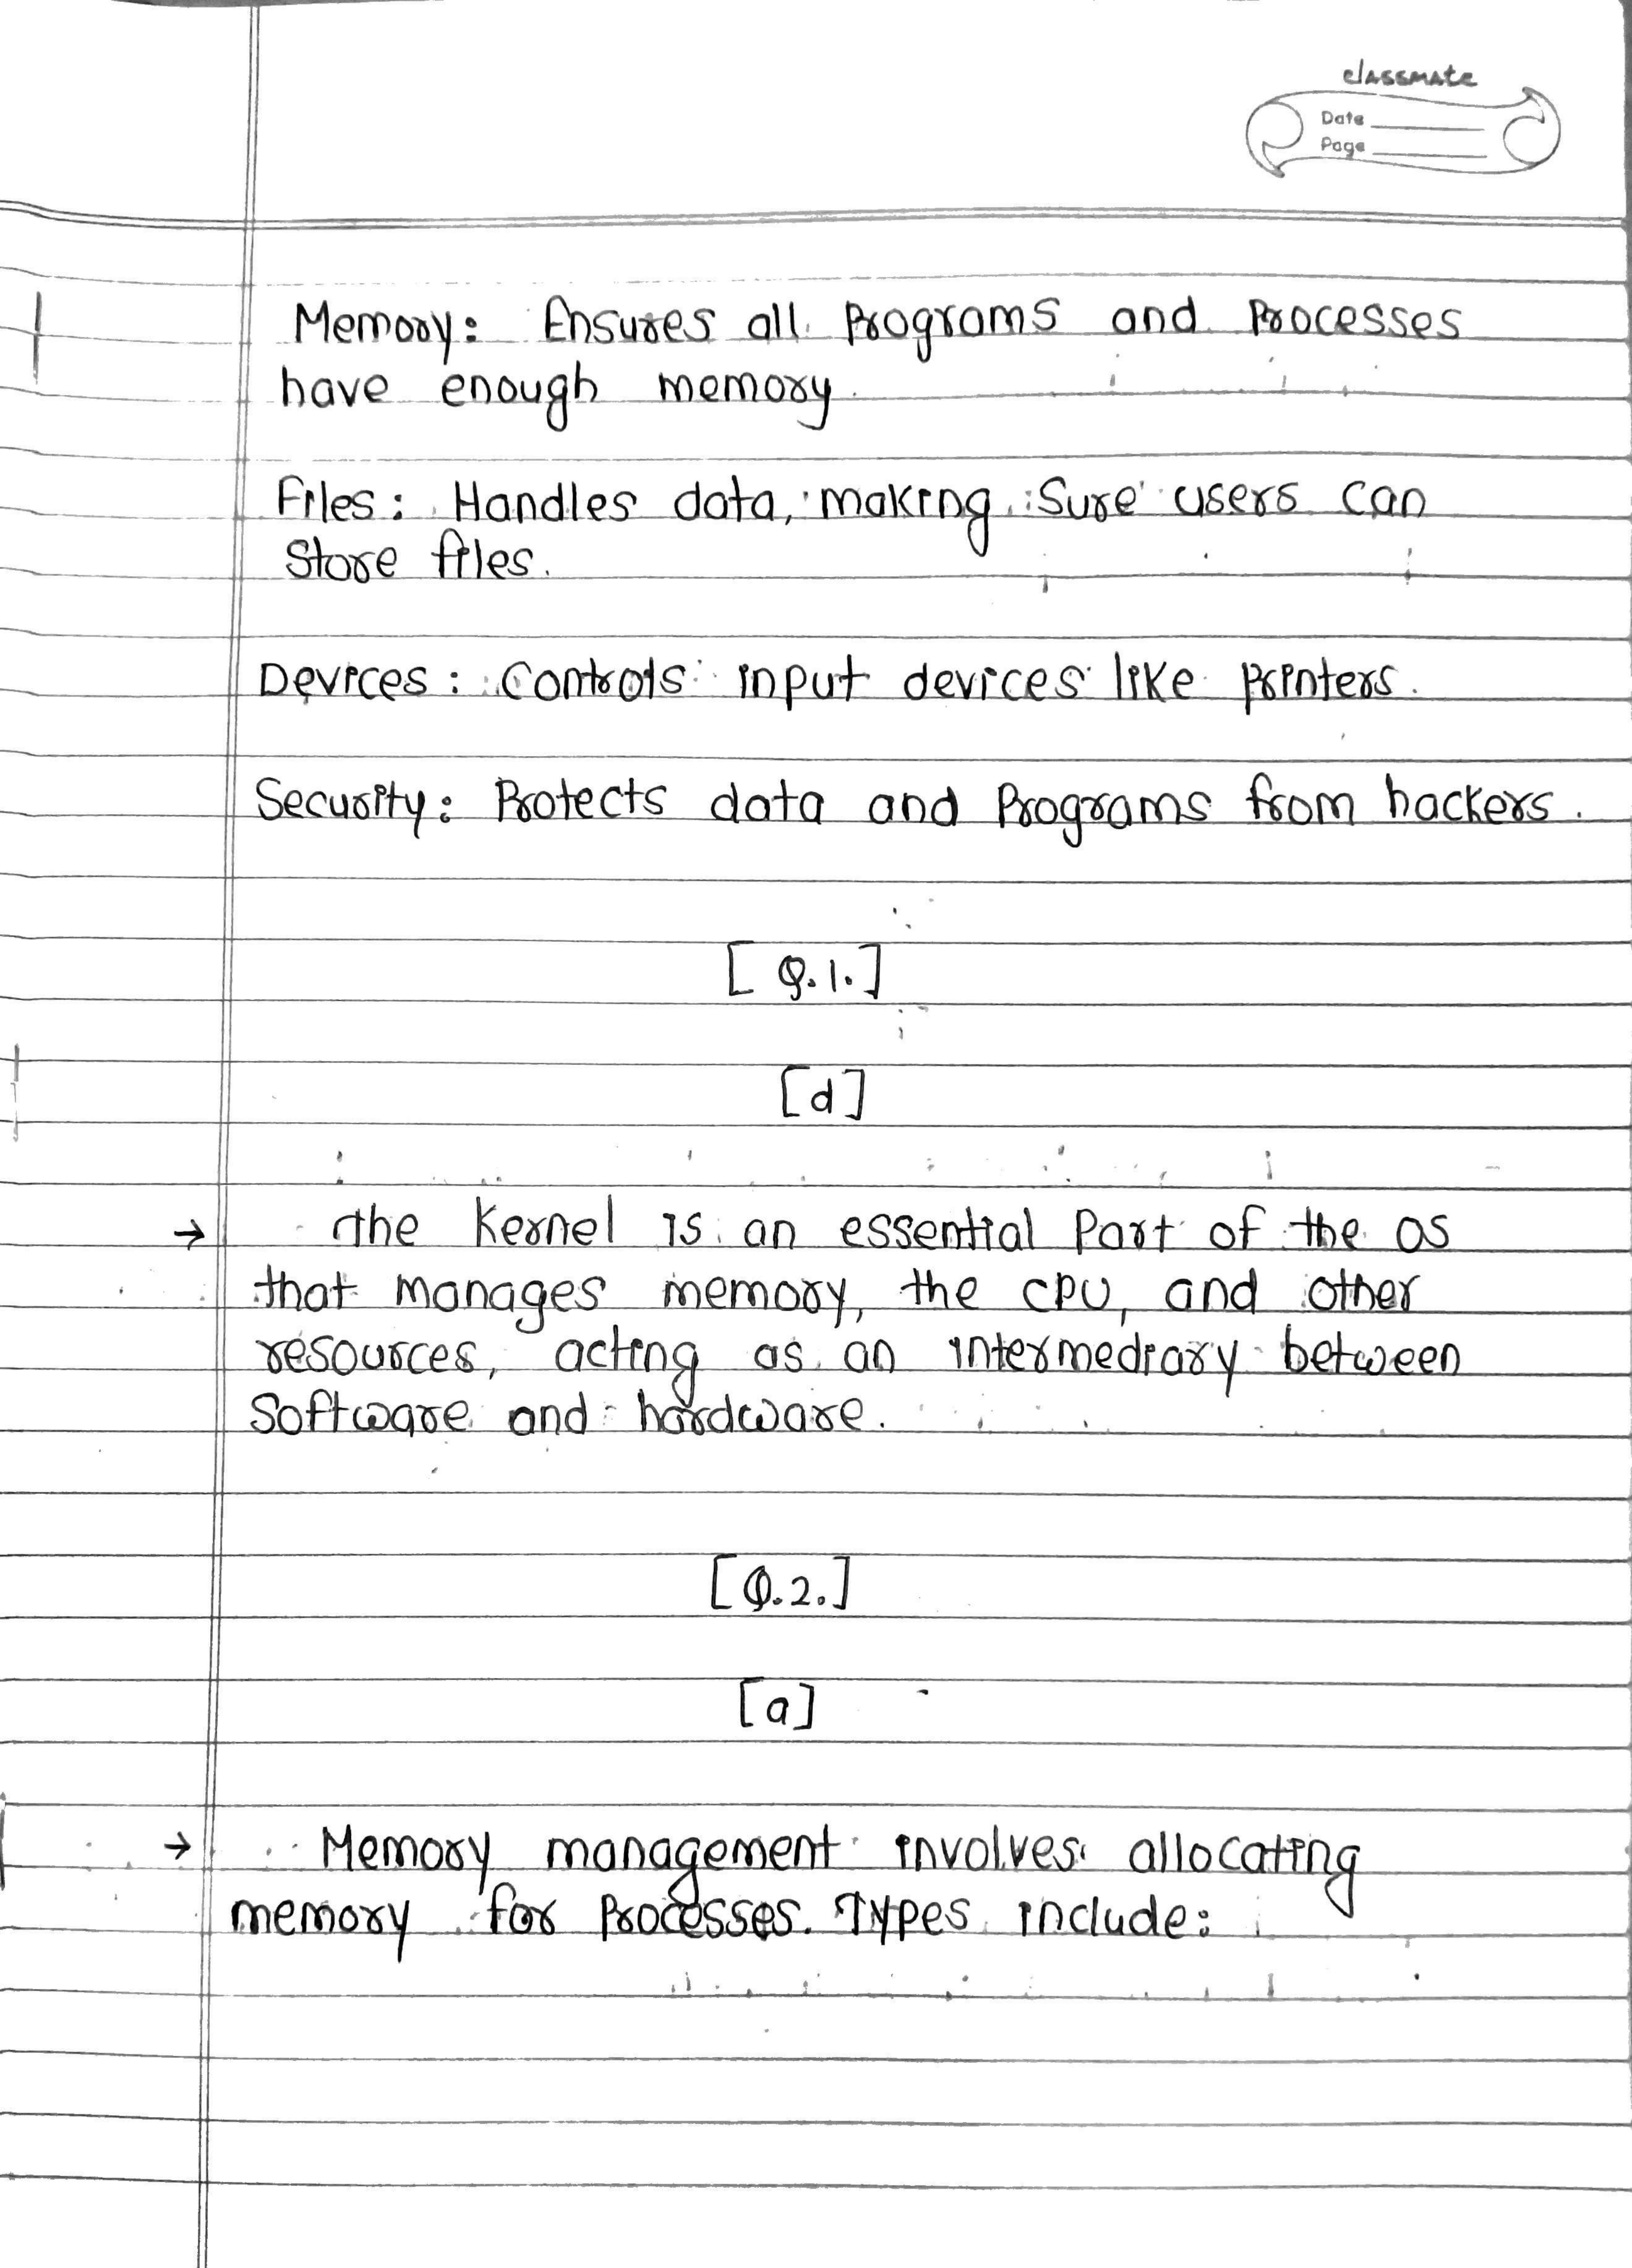 classmate
Date
Page
Memory: Ensures all Programs and Processes
have enough memory.
Files: Handles data, making Sure users can
Store files.
Devices: Controls input devices like Printers.
Security: Protects data and Programs from hackers.
[Q.1.]
[d]
→ The Kernel is an essential Part of the OS
that manages memory, the CPU, and other
resources, acting as an intermediary between
Software and hardware.
[Q.2.]
[a]
→ Memory management involves allocating
memory for Processes. Types include: